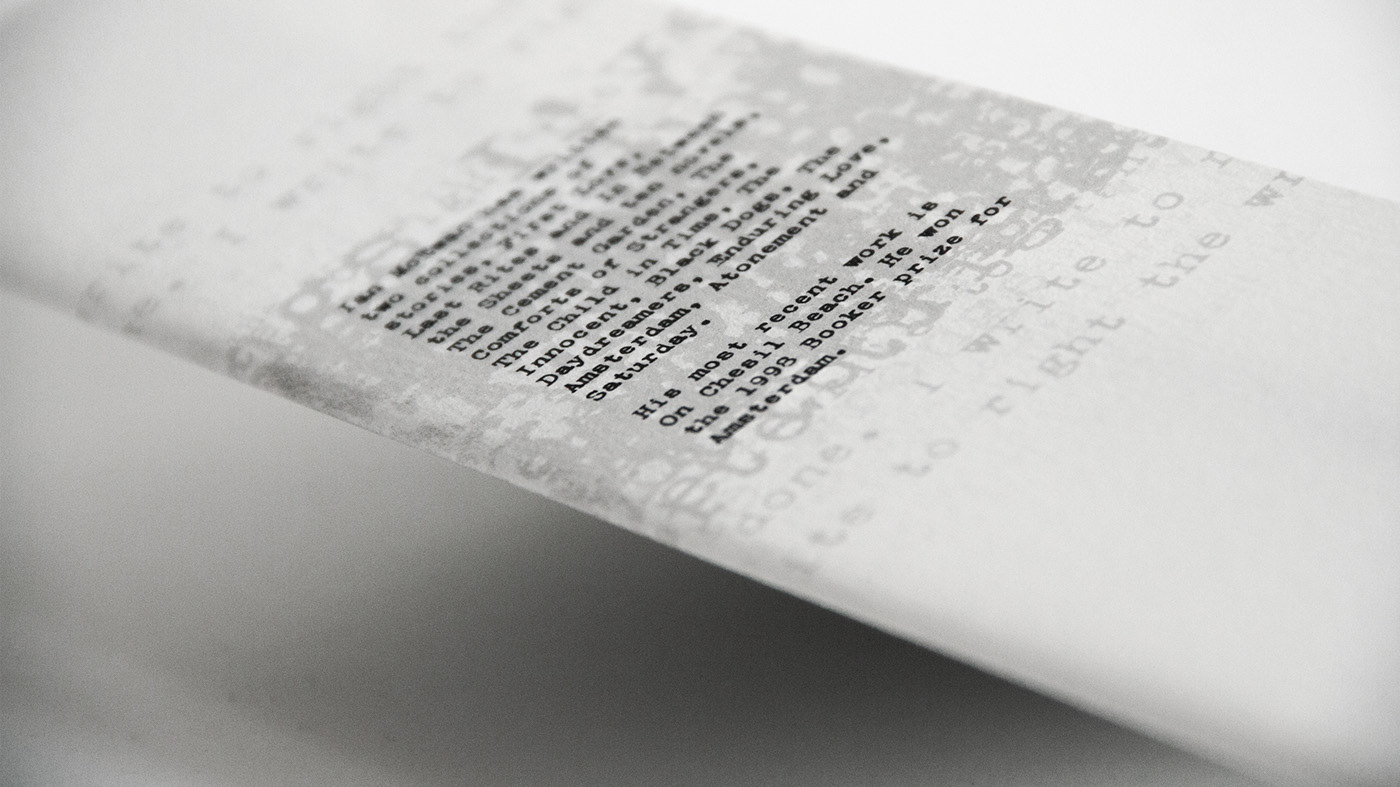 Ian McEwan has written
two collections of
stories, First Love,
Last Rites and In Between
the Sheets and ten novels.
The Cement Garden, The
Comforts of Strangers,
The Child in Time, The
Innocent, Black Dogs, The
Daydreamers, Enduring Love,
Amsterdam, Atonement and
Saturday.
His most recent work is
On Chesil Beach. He won
the 1998 Booker prize for
Amsterdam.
I write to
done.
ts to right the